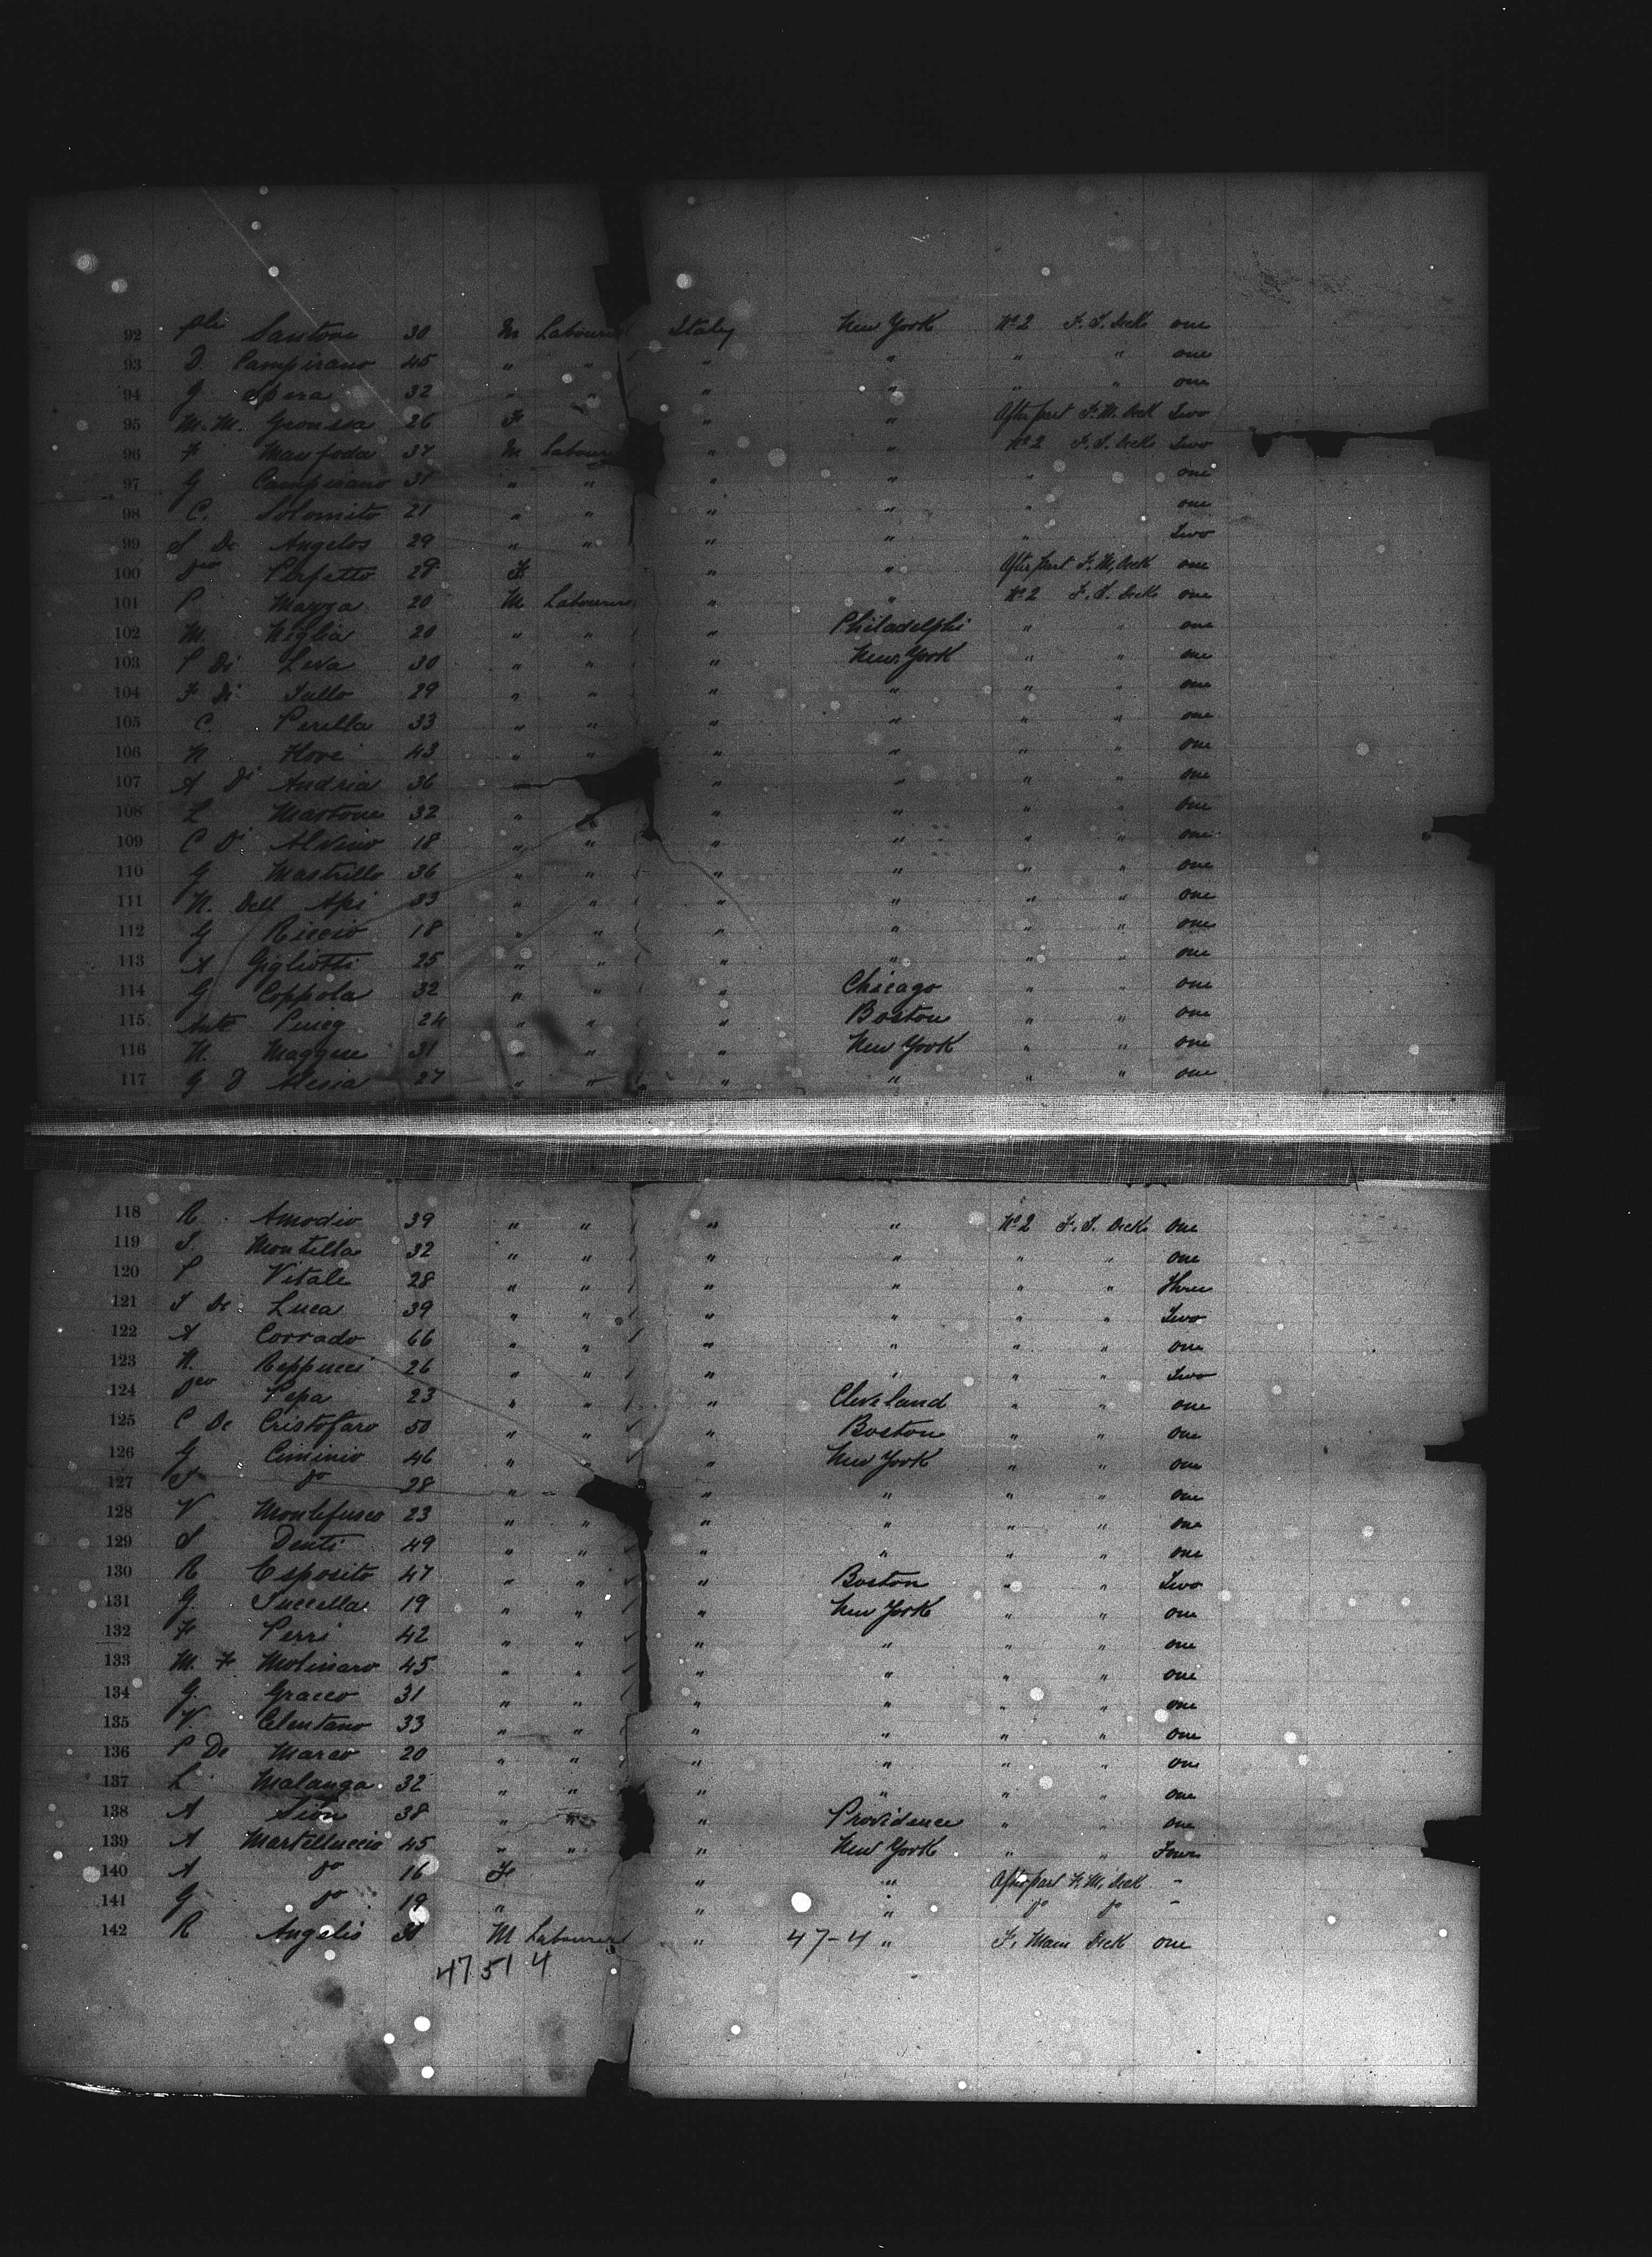 92 Santone 30 M Labourer Italy New York No 2 F. S. Deck one
93 D. Campisano 45 " " " " " " one
94 G Spera 32 " " " " " " one
95 M. M. 26 F " " After part F. M. Deck Two
96 F 37 M Labourer " " No 2 F. S. Deck Two
97 G Campisano 31 " " " " " one
98 C. Solomito 21 " " " " " one
99 S De Angelos 29 " " " " " Two
100 Perfetto 28 F " " After part F. M, Deck one
101 P Mazza 20 M Labourers " " No 2 F. S. Deck one
102 M. Niglia 20 " " " Philadelphi " " one
103 P Di Leva 30 " " " New York " " one
104 F Di Tullo 29 " " " " " " one
105 C. Perella 33 " " " " " " one
106 N 43 " " " " " " one
107 A Di Andria 36 " " " " " one
108 L Martone 32 " " " " " one
109 C Di Alvino 18 " " " " " " one
110 G Mastrillo 36 " " " " " " one
111 N. Dell Api 33 " " " " " " one
112 G Riccio 18 " " " " " " one
113 A Gigliotti 25 " " " " " " one
114 G Coppola 32 " " " Chicago " " one
115 24 " " " Boston " " one
116 N. 31 " " " New York " " one
117 G D Alesia 27 " " " " " " one
118 R. Amodio 39 " " " " No 2 F. S. Deck One
119 S. Montella 32 " " " " " " one
120 P Vitale 28 " " " " " " Three
121 De Luca 39 " " " " " " Two
122 A Corrado 66 " " " " " " one
123 N. Reppucci 26 " " " " " " Two
124 Pepa 23 " " " Cleveland " " one
125 C De Cristofaro 50 " " " Boston " " one
126 G Ciminio 46 " " " New York " " one
127 S do 28 " " " " " " one
128 V Montefusco 23 " " " " " " one
129 S Denti 49 " " " " " " one
130 R Esposito 47 " " " Boston " " Two
131 G. Succella 19 " " " New York " " one
132 F Perri 42 " " " " " " one
133 M. F Molinaro 45 " " " " " " one
134 G. Gracco 31 " " " " " " one
135 V. Celentano 33 " " " " " " one
136 P De Marco 20 " " " " " " one
137 L Malanga 32 " " " " " " one
138 A Sion 38 " " " Providence " " one
139 A Martelluccio 45 " " " New York " " Four
140 A do 16 F " " After part F. M, Deck -
141 G do 19 " " " do do -
142 R Angelis M Labourers " 47-4 " F. Main Deck one
47 51 4